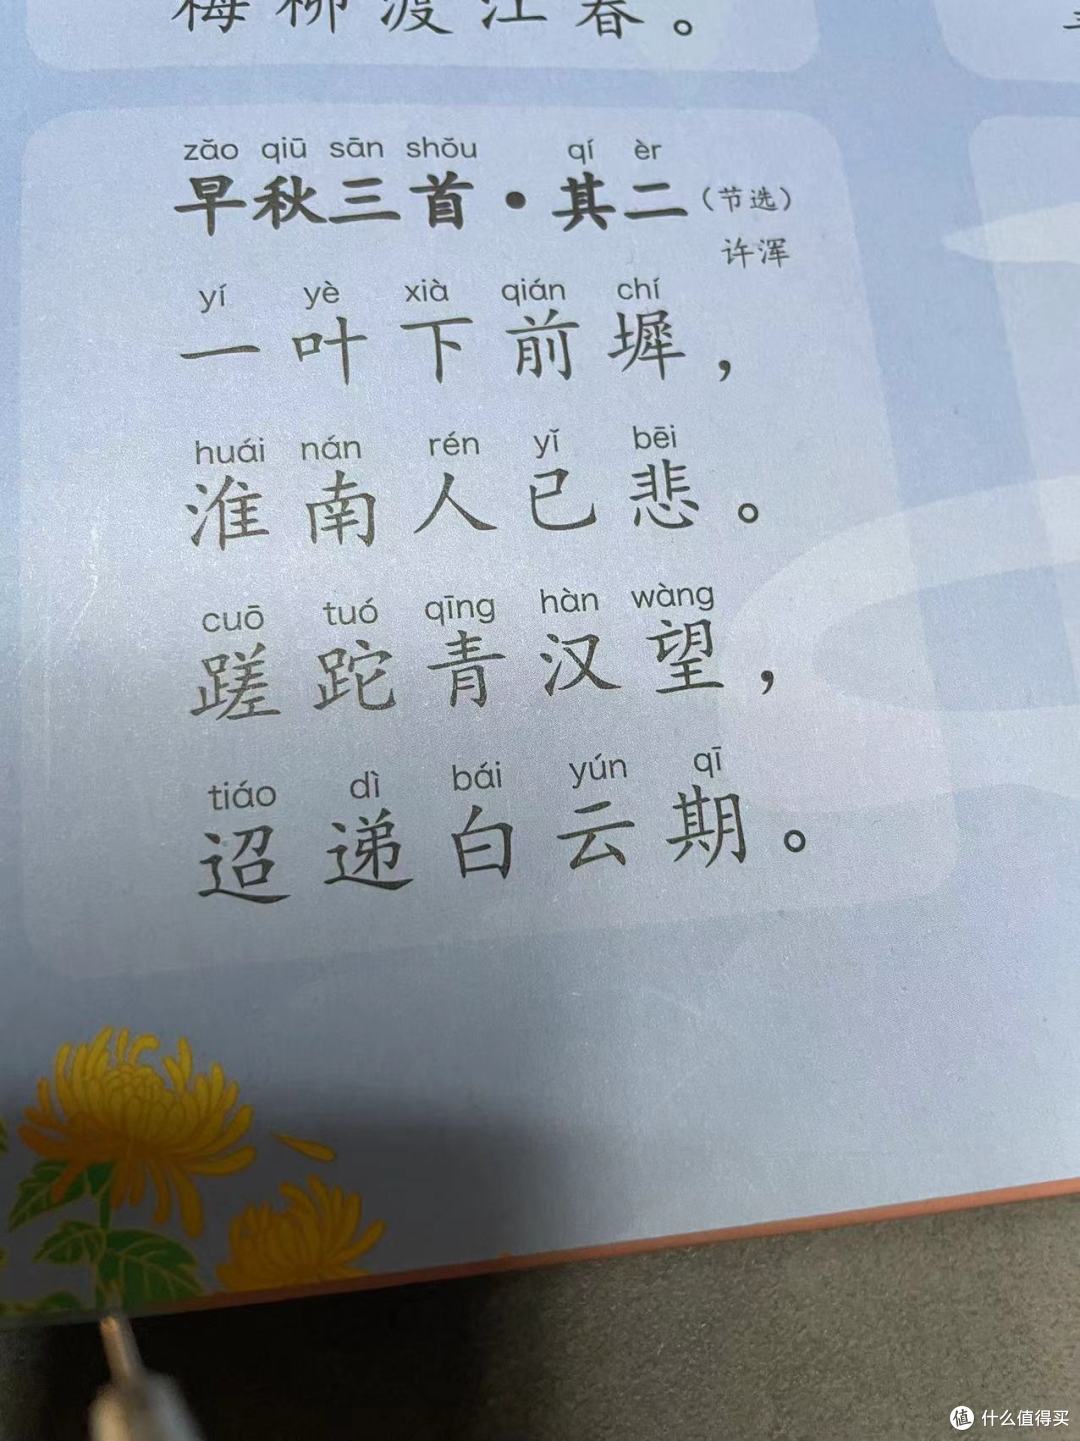 梅柳渡江春。
zǎo qiū sān shǒu qí èr
早秋三首·其二（节选）
许浑
yí yè xià qián chí
一叶下前墀，
huái nán rén yǐ bēi
淮南人已悲。
cuō tuó qīng hàn wàng
蹉跎青汉望，
tiáo dì bái yún qī
迢递白云期。
值 什么值得买